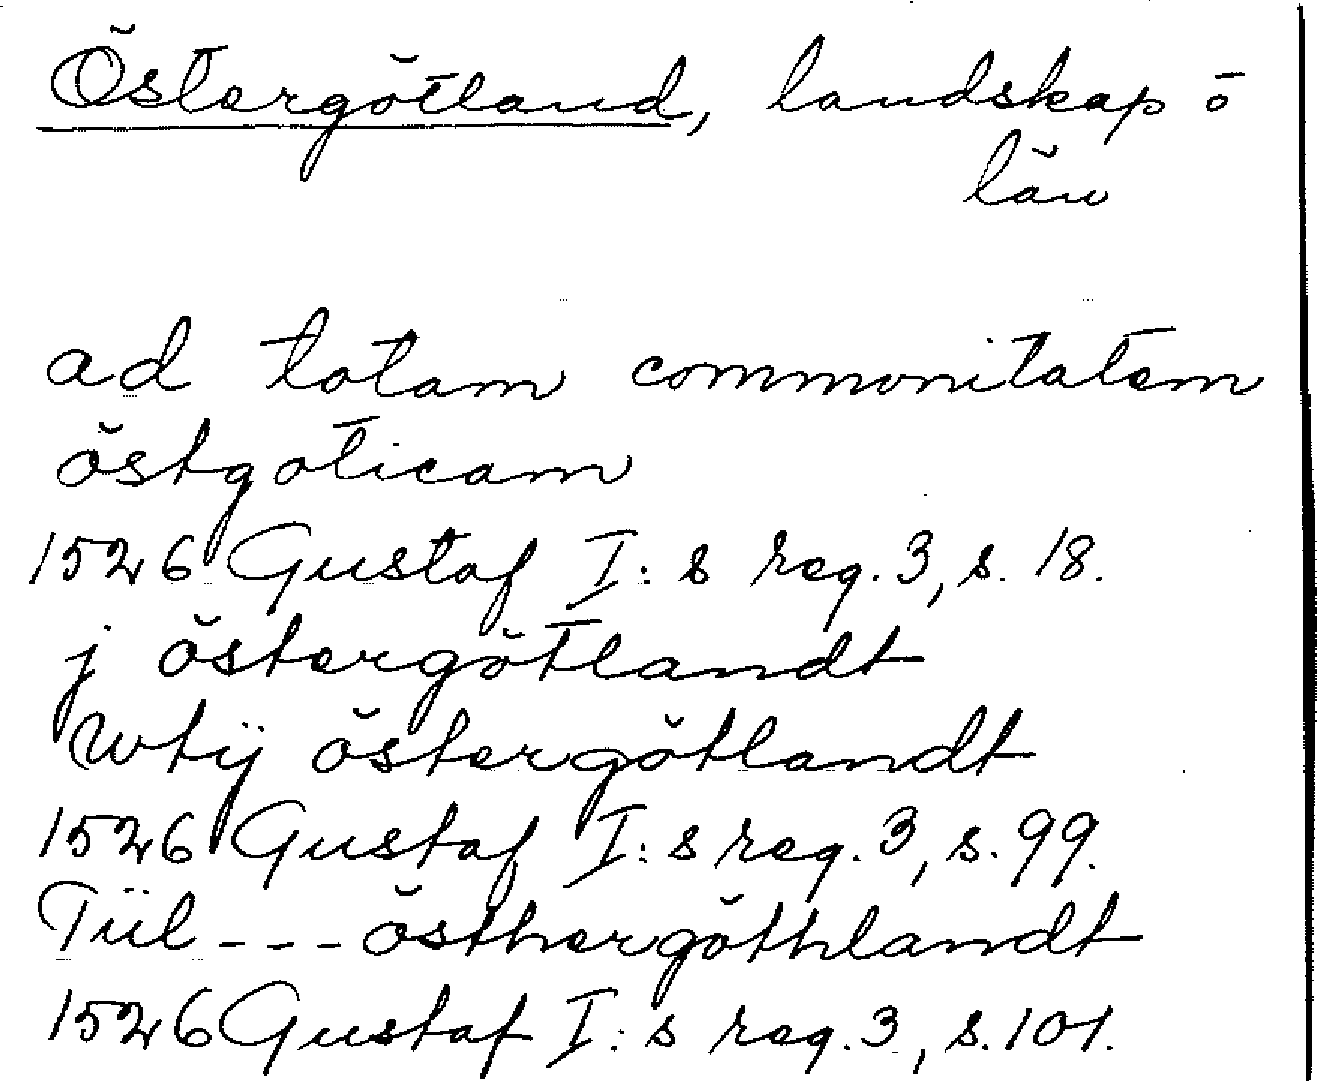 Östergötland, landskap o
län
ad totam commonitatem
östgoticam
1526 Gustaf I:s reg. 3, s. 18.
j östergötlandt
Wtij östergötlandt
1526 Gustaf I:s reg. 3, s. 99.
Tiil - - - östhergöthlandt
1526 Gustaf I:s reg. 3, s. 101.